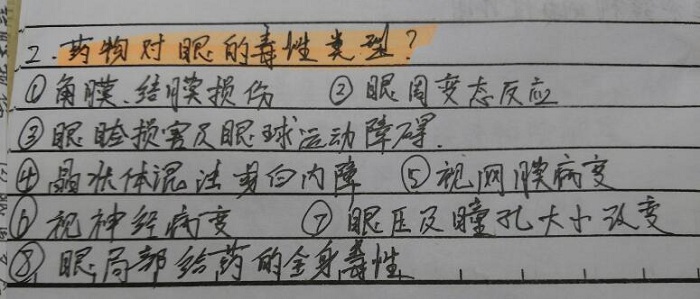 2.药物对眼的毒性类型?
①角膜、结膜损伤 ②眼周变态反应
③眼睑损害及眼球运动障碍.
④晶状体混浊 白内障 ⑤视网膜病变
⑥视神经病变 ⑦眼压及瞳孔大小改变
⑧眼局部给药的全身毒性